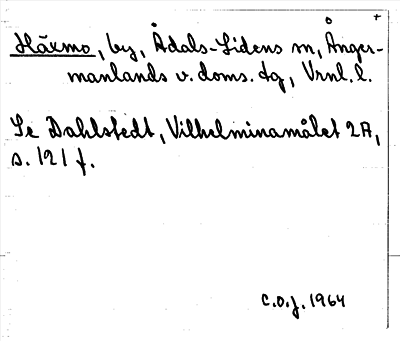 Häxmo, by, Ådals-Lidens sn, Ånger-
manlands v. doms. dg, Vrnl. l.
Se Dahlstedt, Vilhelminamålet 2A,
s. 121 f.
C.O.J. 1964